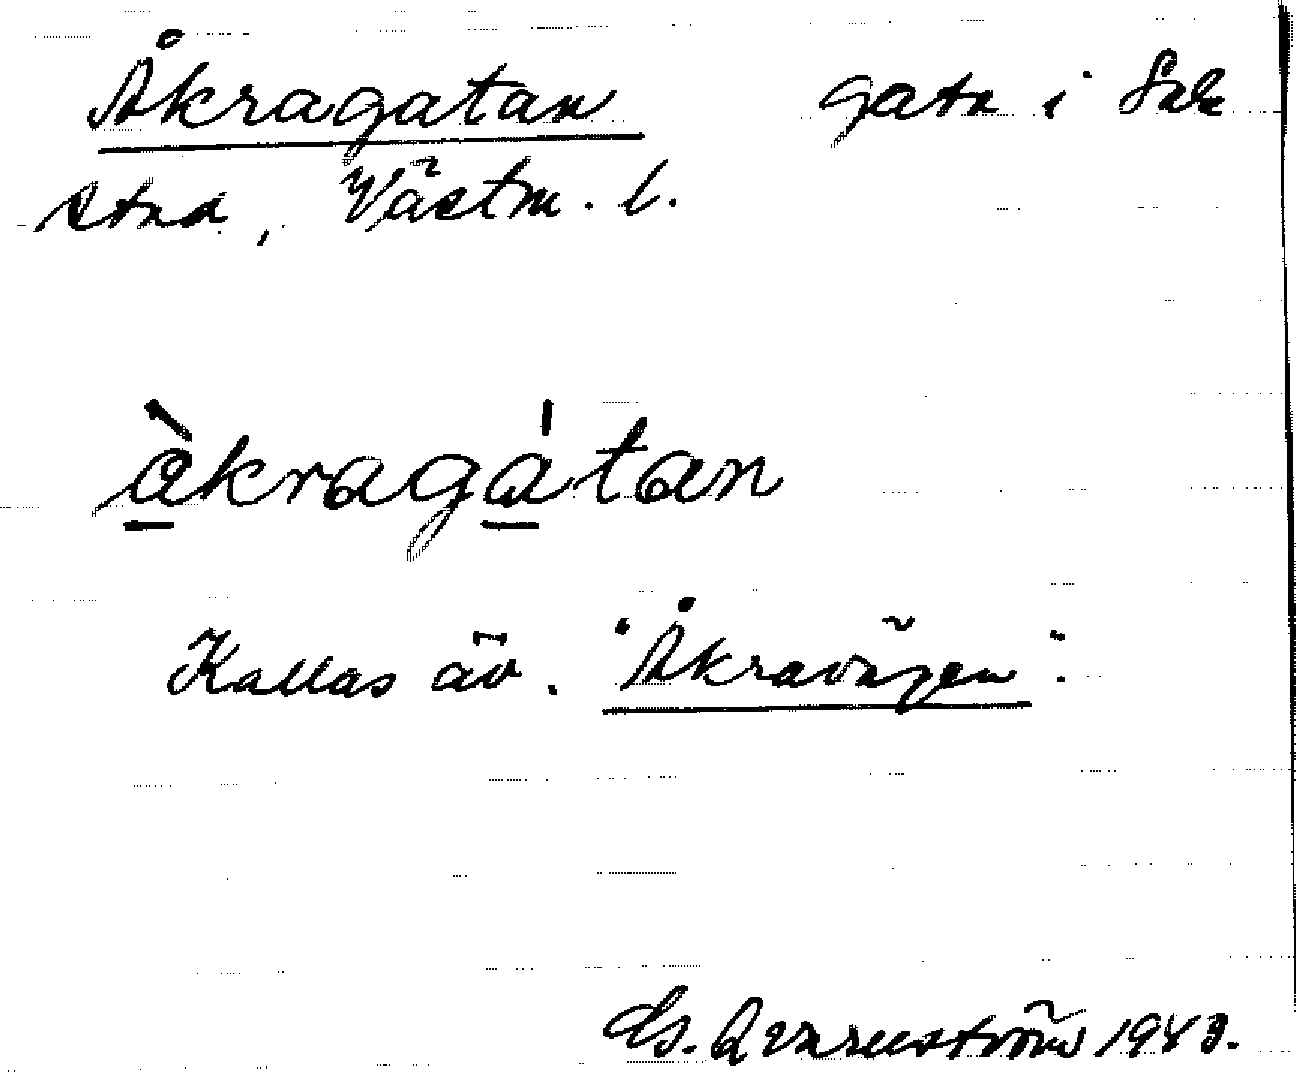 Åkragatan gata i Sala
stad, Västm. l.
àkragátan
Kallas äv. "Åkravägen".
G. Qvarnström 1943.